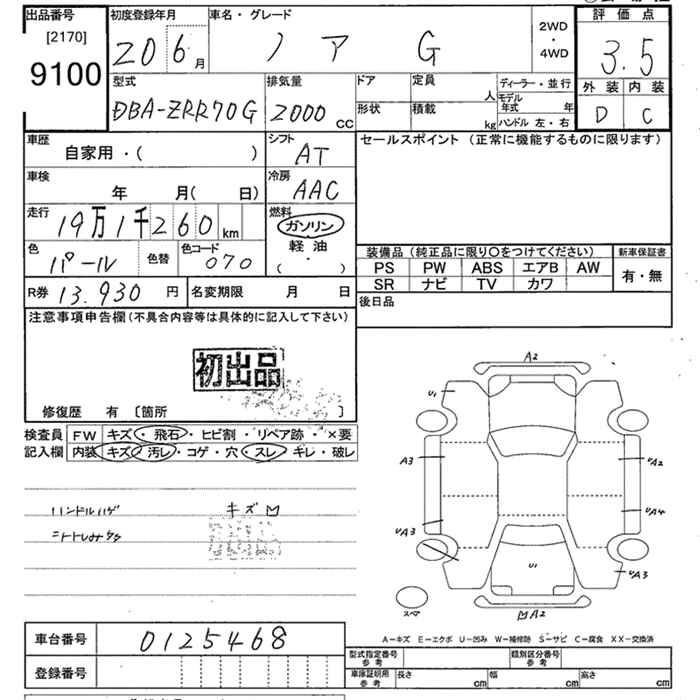 出品番号
[2170]
9100
初度登録年月
20 6 月
車名・グレード
ノア G
2WD
・
4WD
評価点
3.5
外装 内装
D C
型式
DBA-ZRR70G
排気量
2000 CC
ドア
定員
人
形状
積載
kg
ディーラー・並行
モデル年式 年
ハンドル 左・右
車歴
自家用・( )
シフト
AT
車検
年 月( 日)
冷房
AAC
走行
19万1千260 km
燃料
ガソリン
軽油
( ・ )
色
パール
色替
色コード
070
R券 13,930 円
名変期限 月 日
セールスポイント (正常に機能するものに限ります)
装備品(純正品に限り○をつけてください)
新車保証書
PS PW ABS エアB AW
SR ナビ TV カワ
有・無
後日品
注意事項申告欄(不具合内容等は具体的に記入して下さい)
初出品
修復歴 有 〔箇所 〕
検査員
記入欄
FW キズ・飛石・ヒビ割・リペア跡・×要
内装 キズ・汚レ・コゲ・穴・スレ・キレ・破レ
ハンドルハゲ
キズ
A2
U1
A3
UA2
UA4
UA3
UA3
U1
A2
スペア
A-キズ E-エクボ U-凹み W-補修跡 S-サビ C-腐食 XX-交換済
車台番号
0125468
登録番号
型式指定番号
参考
類別区分番号
参考
車庫証明用
参考
長さ cm
幅 cm
高さ cm